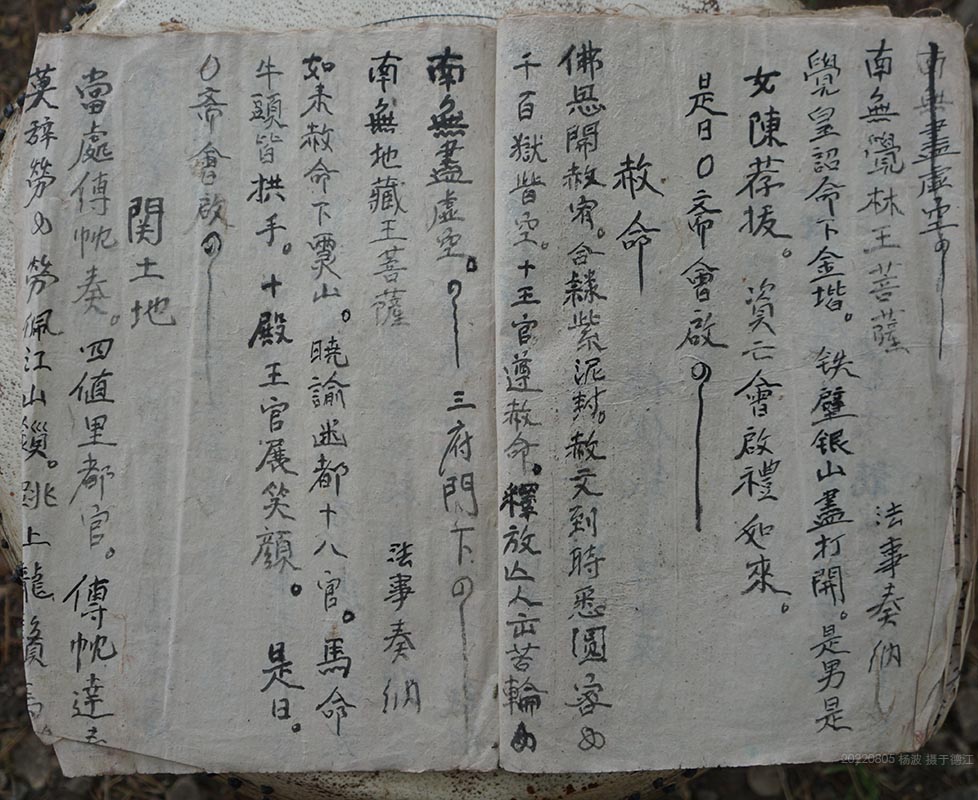 南無盡虛空
南無覺林王菩薩 法事奏納
覺皇詔命下金堦。鉄壁银山盡打開。是男是
女陳荐拔。資亡會啟禮如來。
是日〇斋會啟
赦命
佛恩開赦宥。合隸紫泥封。赦文到時悉圓容
千百獄皆空。十王官遵赦命。釋放亡人出苦輪
南無盡虛空。 三府門下
南無地藏王菩薩 法事奏納
如来赦命下灵山。曉諭迷都十八官。馬命
牛頭皆拱手。十殿王官展笑顔。是日。
〇斋會啟
関土地
當處傅帙奏。四值里都官。傅帙達
莫辞勞 勞佩江山鎻。跳上龍
20220805 杨波 摄于德江